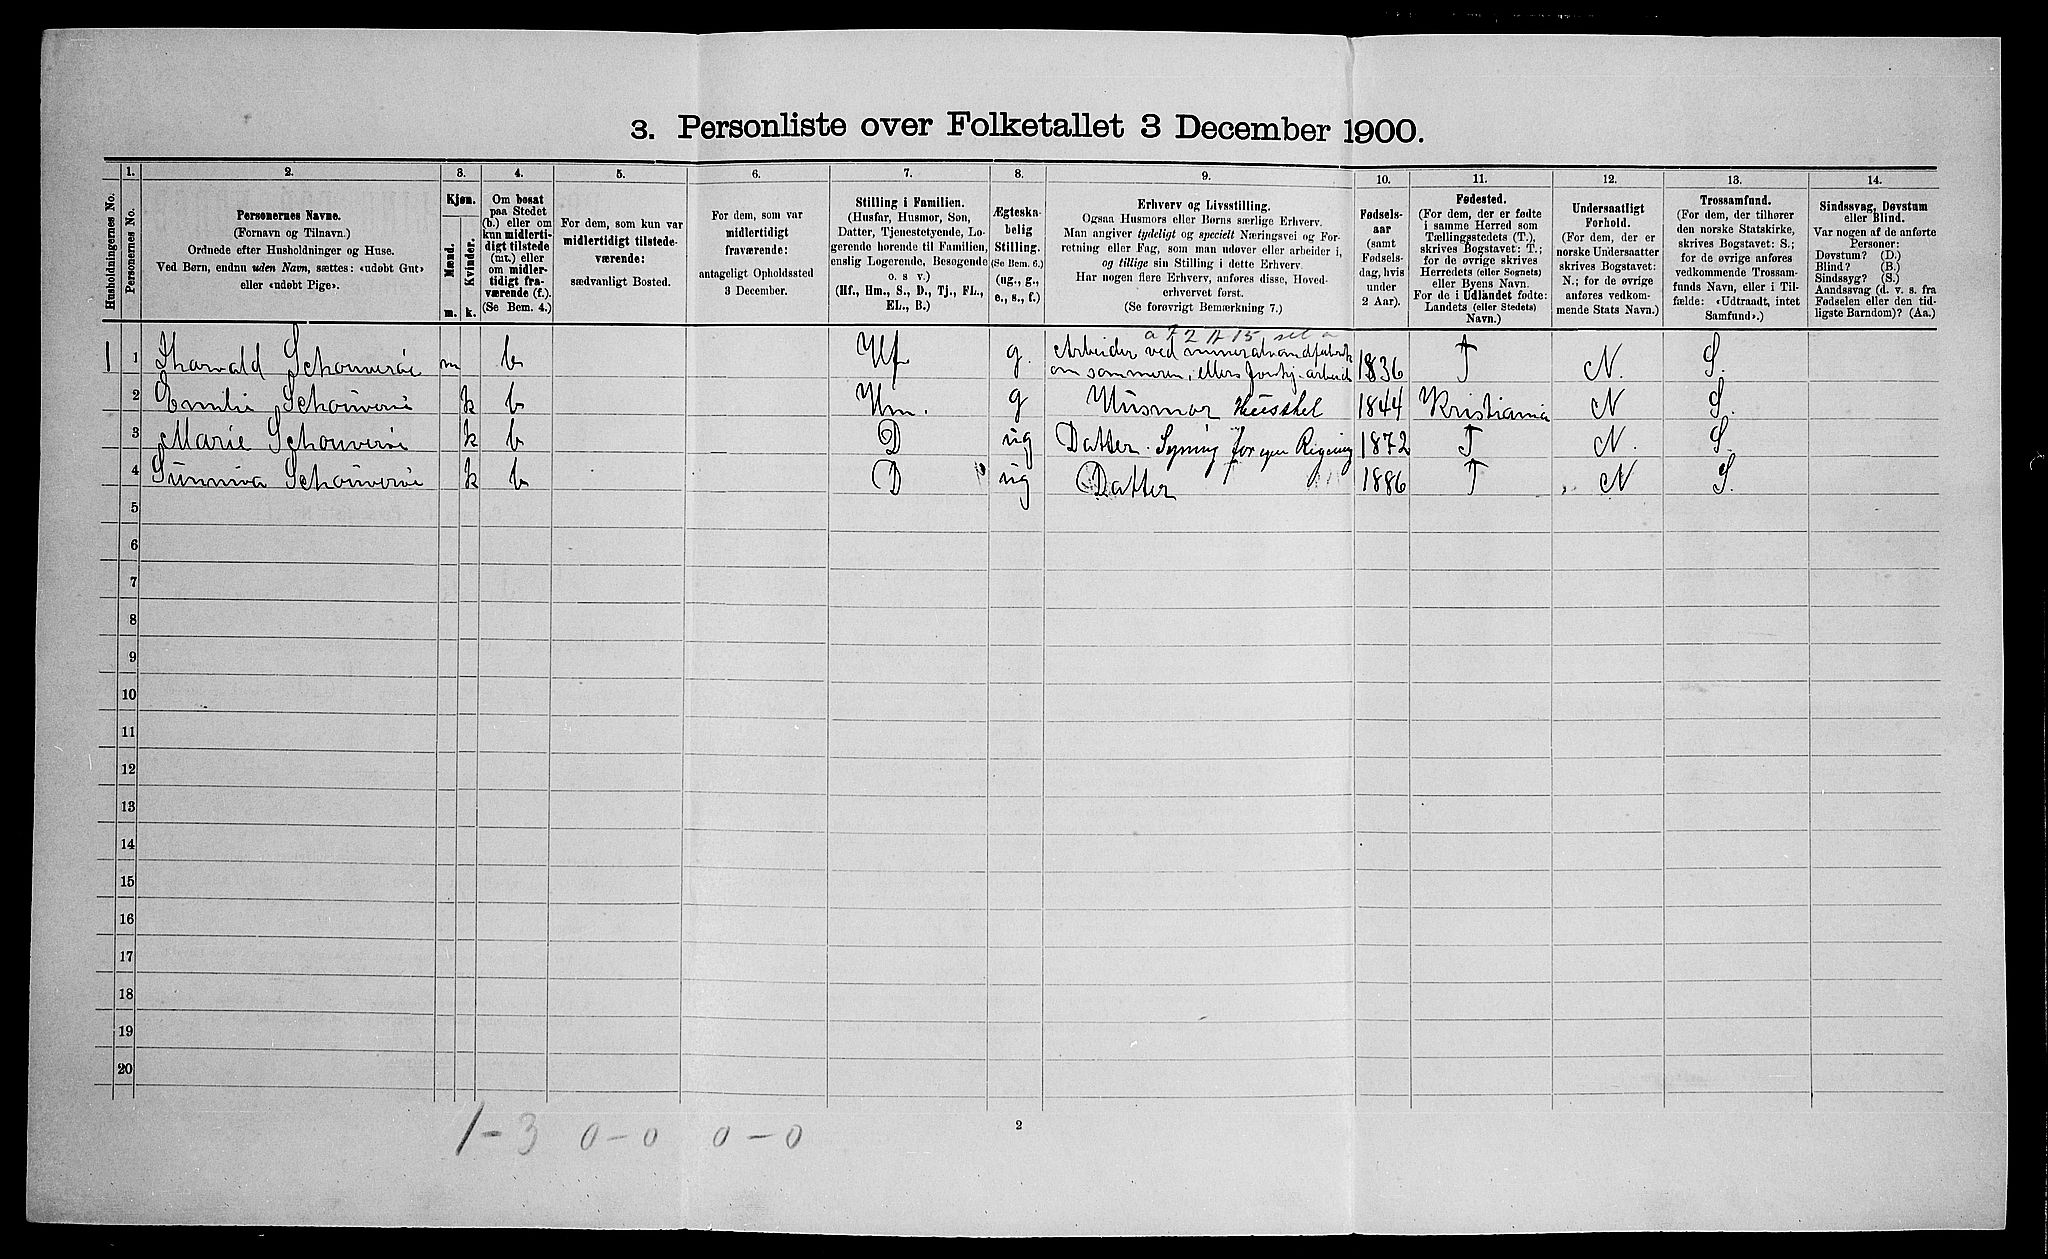 3. Personliste over Folketallet 3 December 1900.
Husholdningernes No.
1.
Personernes No.
2.
Personernes Navne.
(Fornavn og Tilnavn.)
Ordnede efter Husholdninger og Huse.
Ved Børn, endnu uden Navn, sættes: «udøbt Gut»
eller «udøbt Pige».
3.
Kjøn.
Mænd.
m.
Kvinder.
k.
4.
Om bosat
paa Stedet
(b.) eller om
kun midlerti-
digt tilstede
(mt.) eller
om midler-
tidigt fra-
værende (f.).
(Se Bem. 4.)
5.
For dem, som kun var
midlertidigt tilstede-
værende:
sædvanligt Bosted.
6.
For dem, som var
midlertidigt
fraværende:
antageligt Opholdssted
3 December.
7.
Stilling i Familien.
(Husfar, Husmor, Søn,
Datter, Tjenestetyende, Lo-
gerende hørende til Familien,
enslig Logerende, Besøgende
o. s v.)
(Hf., Hm., S., D., Tj., FL.,
EL., B.)
8.
Ægteska-
belig
Stilling.
(Se Bem. 6.)
(ug., g.,
e., s., f.)
9.
Erhverv og Livsstilling.
Ogsaa Husmors eller Børns særlige Erhverv.
Man angiver tydeligt og specielt Næringsvei og For-
retning eller Fag, som man udøver eller arbeider i,
og tillige sin Stilling i dette Erhverv.
Har nogen flere Erhverv, anføres disse, Hoved-
erhvervet først.
(Se forøvrigt Bemærkning 7.)
10.
Fødsels-
aar
(samt
Fødsels-
dag, hvis
under
2 Aar).
11.
Fødested.
(For dem, der er fødte
i samme Herred som
Tællingsstedets (T.),
skrives Bogstavet: T.;
for de øvrige skrives
Herredets (eller Sognets)
eller Byens Navn.
For de i Udlandet fødte:
Landets (eller Stedets)
Navn.)
12.
Undersaatligt
Forhold.
(For dem, der er
norske Undersaatter
skrives Bogstavet:
N.; for de øvrige
anføres vedkom-
mende Stats Navn.)
13.
Trossamfund.
(For dem, der tilhører
den norske Statskirke,
skrives Bogstavet: S.;
for de øvrige anføres
vedkommende Trossam-
funds Navn, eller i Til-
fælde: «Udtraadt, intet
Samfund».)
14.
Sindssvag, Døvstum
eller Blind.
Var nogen af de anførte
Personer:
Døvstum? (D.)
Blind? (B.)
Sindssyg? (S.)
Aandssvag (d. v. s. fra
Fødselen eller den tid-
ligste Barndom)? (Aa.)
1 1 Tharvald Schouverøe m b Hf g. Arbeider ved mineralvandfabrik 1836 T N. S.
om sommeren, ellers arbeide
2 Emilie Schouverøe k b Hm. g Husmor Husstel 1844 Kristiania N S.
3 Marie Schouverøe k b D ug Datter. Syning for egen Regning 1872 T N. S.
4 Sunniva Schouverøe k b D ug Datter 1886 T N S.
5
6
7
8
9
10
11
12
13
14
15
16
17
18
19
20
1-3 0-0 0-0
2